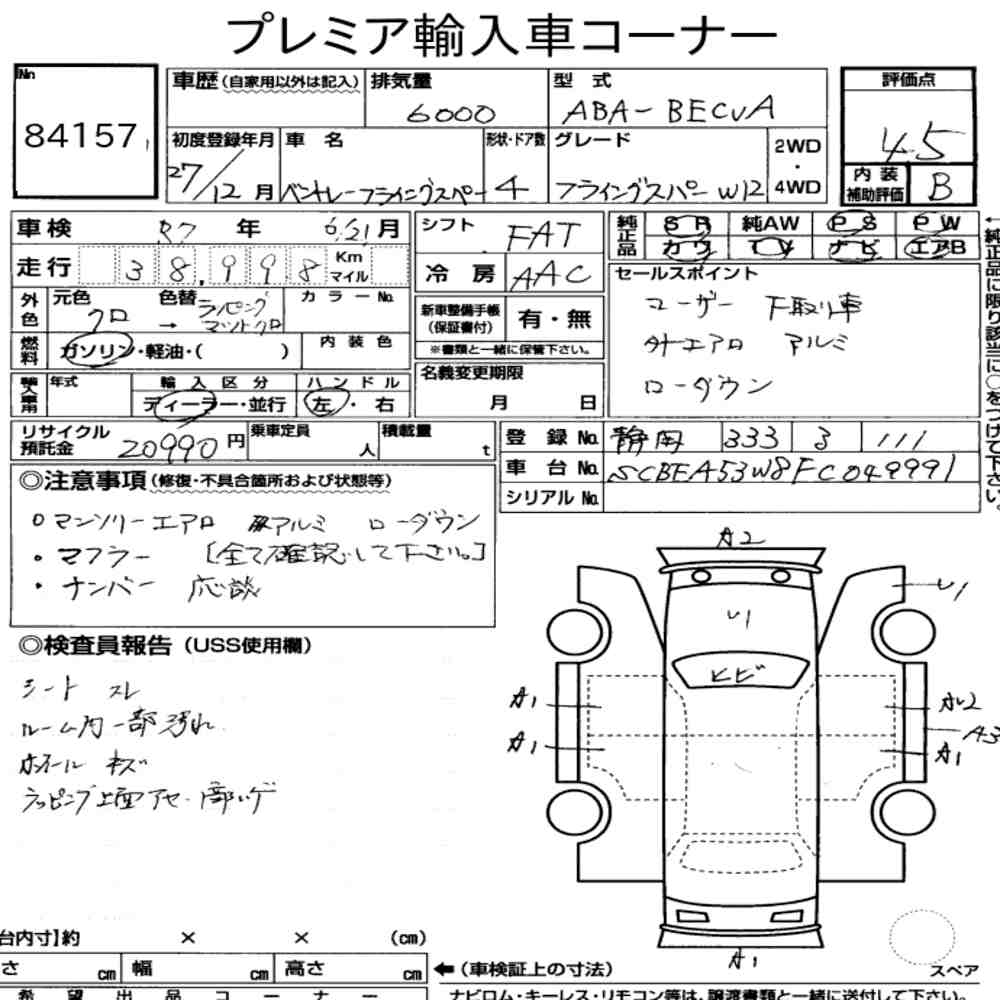 プレミア輸入車コーナー
No
84157
車歴(自家用以外は記入)
排気量
6000
型式
ABA-BECVA
評価点
4.5
初度登録年月
27/12月
車名
ベントレーフライングスペー
形状・ドア数
4
グレード
フライングスパーW12
2WD
・
4WD
内装
補助評価
B
車検 R7年 6/21月
シフト FAT
純正品
SR 純AW PS PW
カワ TV ナビ エアB
走行 38,998 Km マイル
冷房 AAC
セールスポイント
ユーザー 下取り車
外エアロ アルミ
ローダウン
外色
元色 クロ
→
色替 ラッピング マットクロ
カラーNo.
新車整備手帳
(保証書付)
有・無
※書類と一緒に保管下さい。
燃料
ガソリン・軽油・( )
内装色
名義変更期限
月 日
輸入車用
年式
輸入区分
ディーラー・並行
ハンドル
左・右
←純正品に限り該当に○をつけて下さい。
リサイクル
預託金
20990円
乗車定員
人
積載量
t
登録No. 静岡 333 る 111
車台No. SCBEA53W8FC049991
シリアルNo.
◎注意事項(修復・不具合箇所および状態等)
○マンソリーエアロ アルミ ローダウン
・マフラー [全て確認して下さい。]
・ナンバー 応談
◎検査員報告(USS使用欄)
シート スレ
ルーム内一部汚れ
ホイール キズ
ラッピング上面アセ・一部ハゲ
A2
U1
U1
ヒビ
A1
A1
AU2
A3
A1
A1
スペア
台内寸】約 × × (cm)
さ cm 幅 cm 高さ cm
←(車検証上の寸法)
希望出品コーナー
ナビロム・キーレス・リモコン等は、譲渡書類と一緒に送付して下さい。